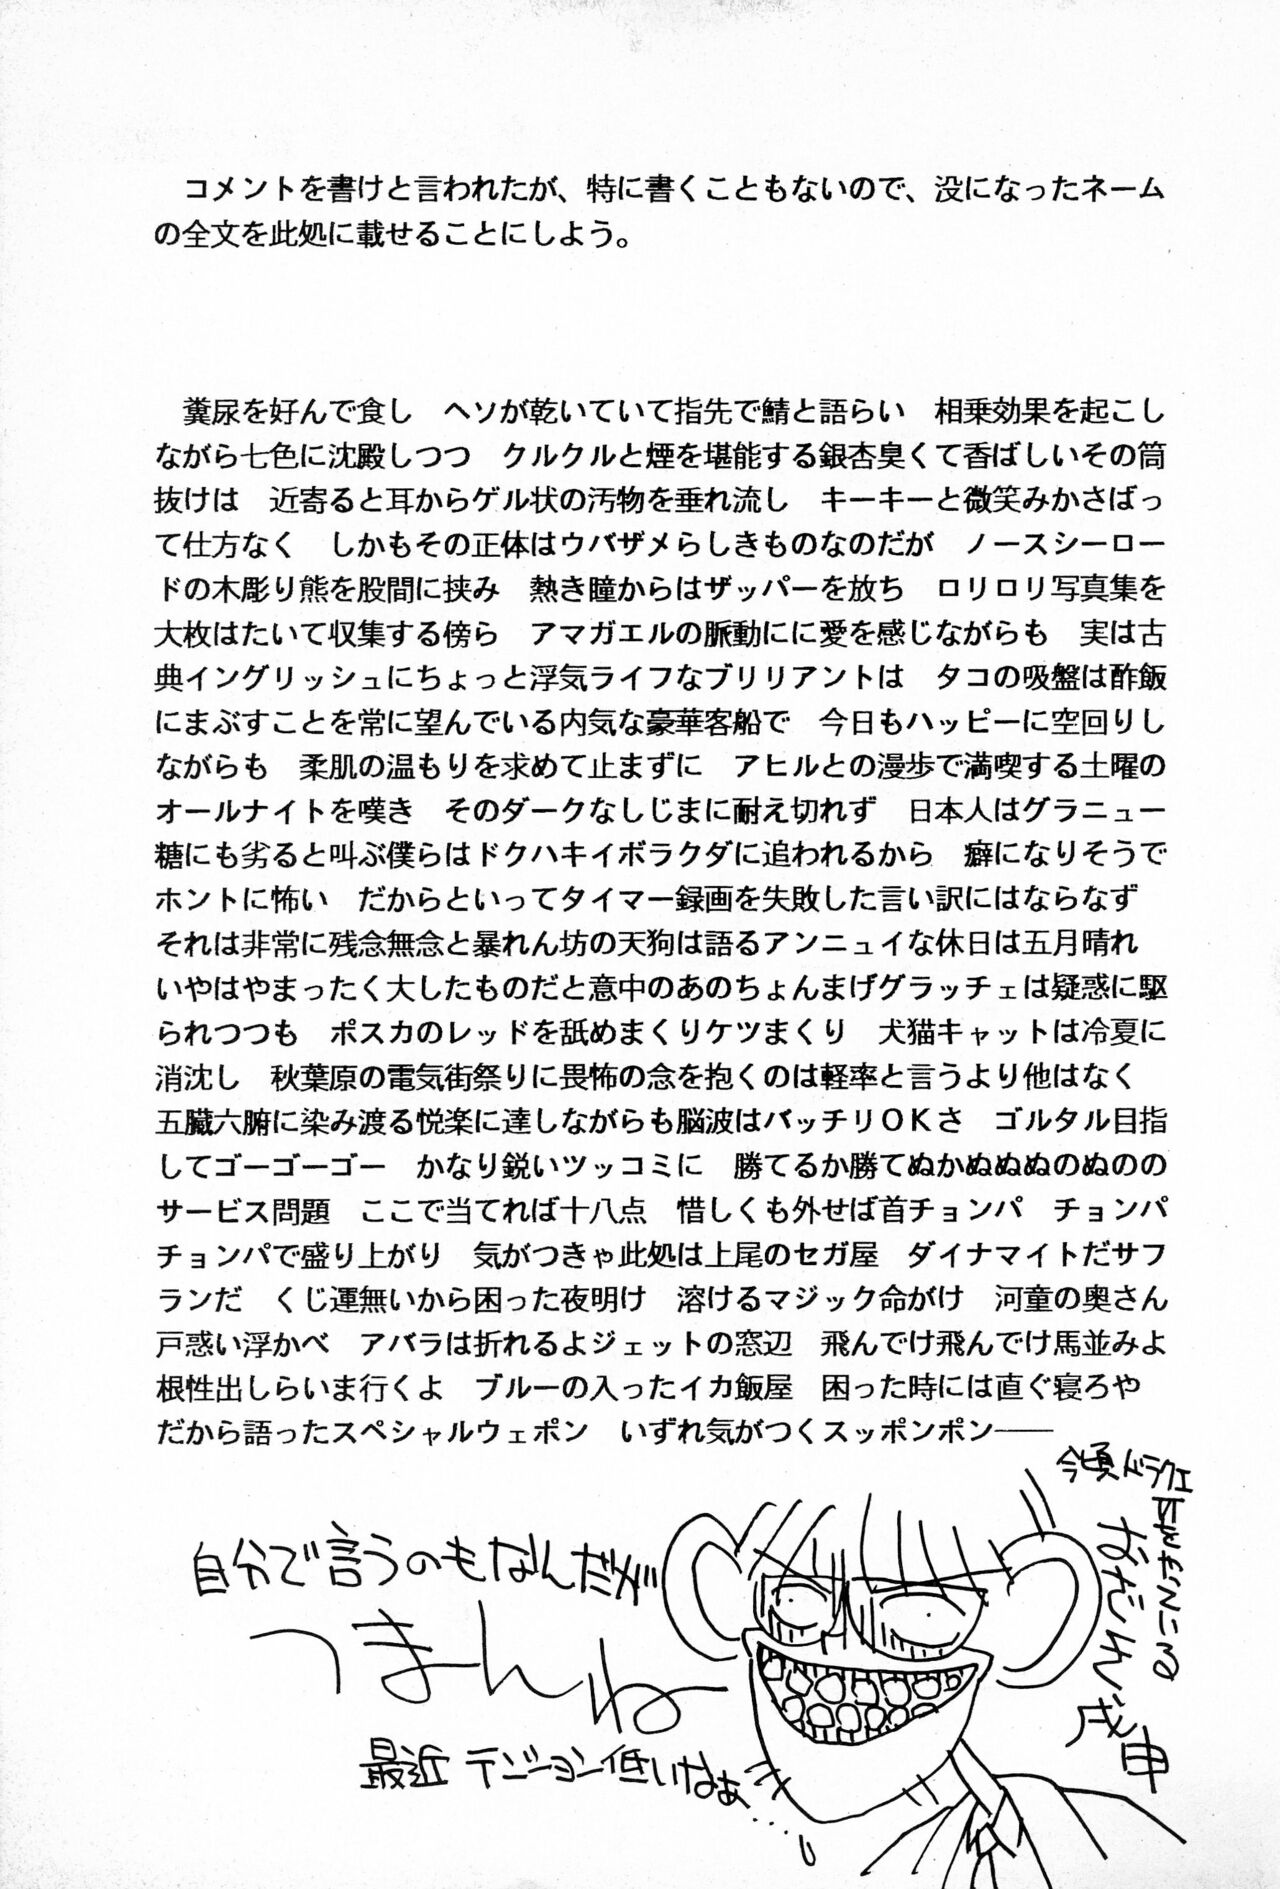 コメントを書けと言われたが、特に書くこともないので、没になったネーム
の全文を此処に載せることにしよう。
糞尿を好んで食し　ヘソが乾いていて指先で鯖と語らい　相乗効果を起こし
ながら七色に沈殿しつつ　クルクルと煙を堪能する銀杏臭くて香ばしいその筒
抜けは　近寄ると耳からゲル状の汚物を垂れ流し　キーキーと微笑みかさばっ
て仕方なく　しかもその正体はウバザメらしきものなのだが　ノースシーロー
ドの木彫り熊を股間に挟み　熱き瞳からはザッパーを放ち　ロリロリ写真集を
大枚はたいて収集する傍ら　アマガエルの脈動にに愛を感じながらも　実は古
典イングリッシュにちょっと浮気ライフなブリリアントは　タコの吸盤は酢飯
にまぶすことを常に望んでいる内気な豪華客船で　今日もハッピーに空回りし
ながらも　柔肌の温もりを求めて止まずに　アヒルとの漫歩で満喫する土曜の
オールナイトを嘆き　そのダークなしじまに耐え切れず　日本人はグラニュー
糖にも劣ると叫ぶ僕らはドクハキイボラクダに追われるから　癖になりそうで
ホントに怖い　だからといってタイマー録画を失敗した言い訳にはならなず
それは非常に残念無念と暴れん坊の天狗は語るアンニュイな休日は五月晴れ
いやはやまったく大したものだと意中のあのちょんまげグラッチェは疑惑に駆
られつつも　ポスカのレッドを舐めまくりケツまくり　犬猫キャットは冷夏に
消沈し　秋葉原の電気街祭りに畏怖の念を抱くのは軽率と言うより他はなく
五臓六腑に染み渡る悦楽に達しながらも脳波はバッチリＯＫさ　ゴルタル目指
してゴーゴーゴー　かなり鋭いツッコミに　勝てるか勝てぬかぬぬぬのぬのの
サービス問題　ここで当てれば十八点　惜しくも外せば首チョンパ　チョンパ
チョンパで盛り上がり　気がつきゃ此処は上尾のセガ屋　ダイナマイトだサフ
ランだ　くじ運無いから困った夜明け　溶けるマジック命がけ　河童の奥さん
戸惑い浮かべ　アバラは折れるよジェットの窓辺　飛んでけ飛んでけ馬並みよ
根性出しらいま行くよ　ブルーの入ったイカ飯屋　困った時には直ぐ寝ろや
だから語ったスペシャルウェポン　いずれ気がつくスッポンポン――
自分で言うのもなんだが
つまんね
最近 テンション低いなぁ…
今頃ドラクエ
おだわ 戌申